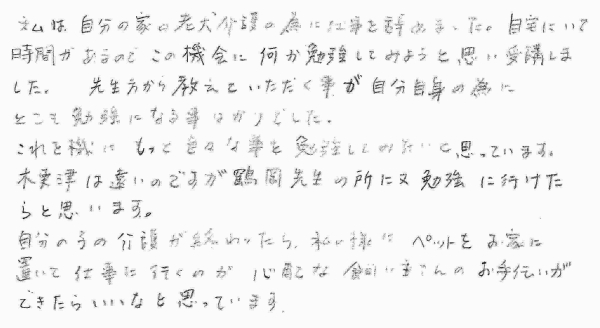 私は自分の家の老犬介護の為に仕事を辞めました。自宅にいて
時間があるのでこの機会に何か勉強してみようと思い受講しま
した。 先生方から教えていただく事が自分自身の為に
とても勉強になる事ばかりでした。
これを機にもっと色々な事を勉強してみたいと思っています。
木更津は遠いのですが鶴岡先生の所に又勉強に行けた
らと思います。
自分の子の介護が終わったら、私の様にペットをお家に
置いて仕事に行くのが心配な飼い主さんのお手伝いが
できたらいいなと思っています。